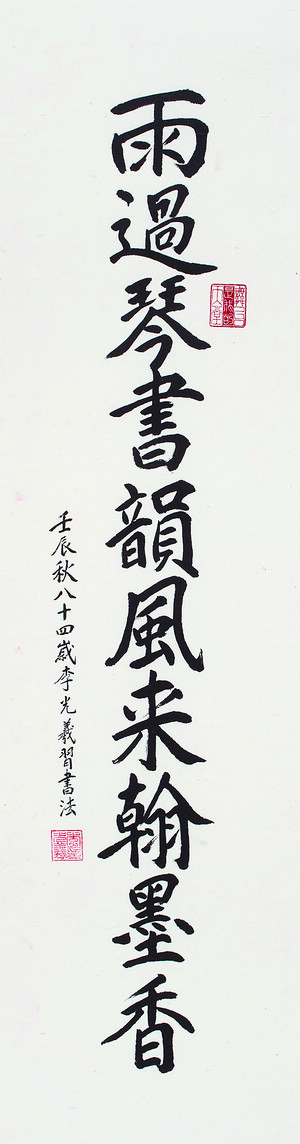 雨過琴書韻風来翰墨香
壬辰秋八十四歲李光羲習書法